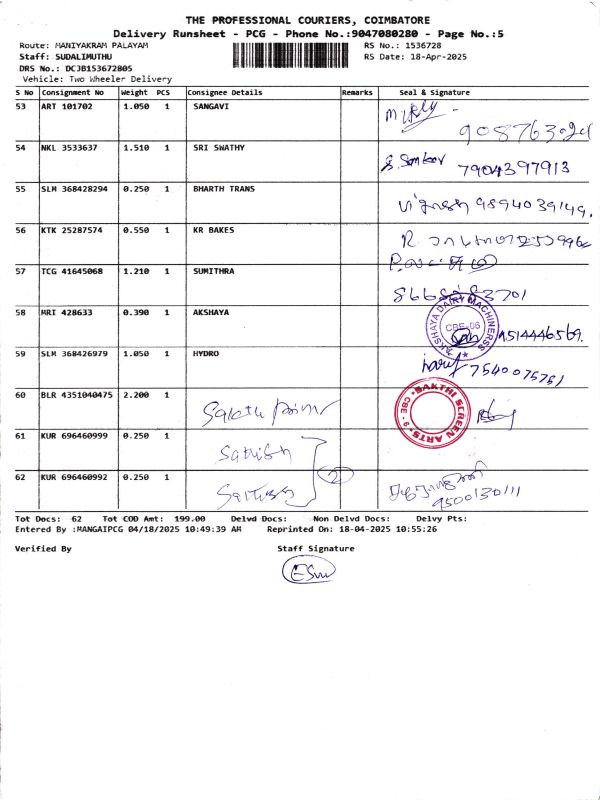 THE PROFESSIONAL COURIERS, COIMBATORE
Delivery Runsheet - PCG - Phone No.:9047080280 - Page No.:5
Route: MANIYAKRAM PALAYAM RS No.: 1536728
Staff: SUDALIMUTHU RS Date: 18-Apr-2025
DRS No.: DCJB153672805
Vehicle: Two Wheeler Delivery
S No Consignment No Weight PCS Consignee Details Remarks Seal & Signature
53 ART 101702 1.050 1 SANGAVI
54 NKL 3533637 1.510 1 SRI SWATHY 7904397913
55 SLM 368428294 0.250 1 BHARTH TRANS 9894039149.
56 KTK 25287574 0.550 1 KR BAKES R.
57 TCG 41645068 1.210 1 SUMITHRA
58 MRI 428633 0.390 1 AKSHAYA AKSHAYA DAIRY MACHINERSS CBE-06
59 SLM 368426979 1.050 1 HYDRO 7540075751
60 BLR 4351040475 2.200 1 SAKTHI SCREEN ARTS CBE - 9
61 KUR 696460999 0.250 1 Sathish
62 KUR 696460992 0.250 1 2 9500130111
Tot Docs: 62 Tot COD Amt: 199.00 Delvd Docs: Non Delvd Docs: Delvy Pts:
Entered By :MANGAIPCG 04/18/2025 10:49:39 AM Reprinted On: 18-04-2025 10:55:26
Verified By Staff Signature